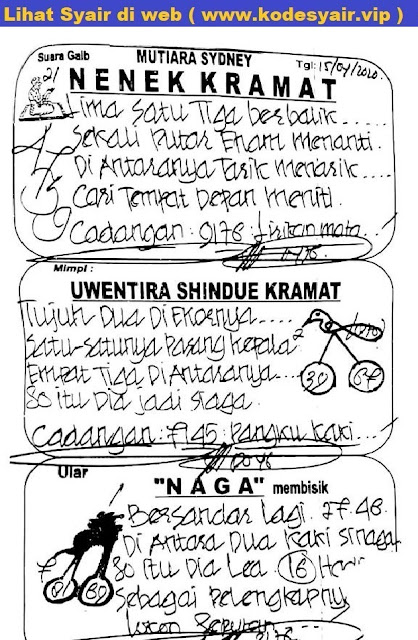 Lihat Syair di web ( www.kodesyair.vip )
Suara Gaib
MUTIARA SYDNEY
Tgl: 15/04/2020.
21
NENEK KRAMAT
Lima Satu Tiga berbalik.....
Sekali Putar Enam Menanti.
Di Antaranya Tarik Menarik....
Cari Tempat Depan Meniti.
Cadangan: 9178: Lirikan mata...
Mimpi :
UWENTIRA SHINDUE KRAMAT
Tujuh Dua Di Ekornya.....
Satu-Satunya Pasang Kepala
Empat Tiga Di Antaranya...
80 itu Dia jadi siaga.
Cadangan: 7145: Pangku Kaki...
2
30
Ular
"NAGA" membisik
Bersandar lagi. 77.48.
Di Antara Dua Kaki Sinaga
80 itu Dia Lea (16) Hari
Sebagai Pelengkapnya